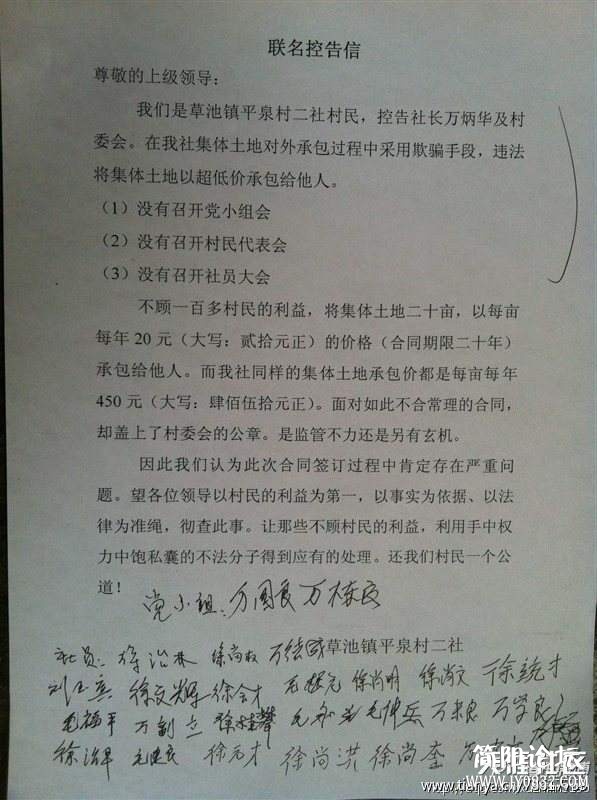 联名控告信
尊敬的上级领导：
我们是草池镇平泉村二社村民，控告社长万炳华及村
委会。在我社集体土地对外承包过程中采用欺骗手段，违法
将集体土地以超低价承包给他人。
（1）没有召开党小组会
（2）没有召开村民代表会
（3）没有召开社员大会
不顾一百多村民的利益，将集体土地二十亩，以每亩
每年 20 元（大写：贰拾元正）的价格（合同期限二十年）
承包给他人。而我社同样的集体土地承包价都是每亩每年
450 元（大写：肆佰伍拾元正）。面对如此不合常理的合同，
却盖上了村委会的公章。是监管不力还是另有玄机。
因此我们认为此次合同签订过程中肯定存在严重问
题。望各位领导以村民的利益为第一，以事实为依据、以法
律为准绳，彻查此事。让那些不顾村民的利益，利用手中权
力中饱私囊的不法分子得到应有的处理。还我们村民一个公
道！
党小组：万国良
社员：徐治林 草池镇平泉村二社
徐文辉 徐会才 徐尚明 徐尚文
徐治军 徐元才 徐尚洪 徐尚奎
简阳论坛
www.JY0832.com